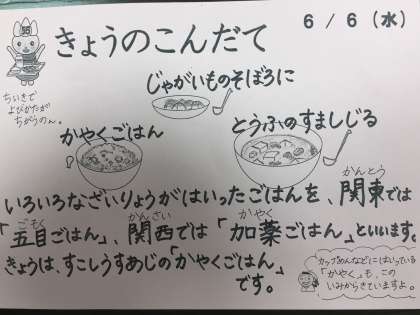 きょうのこんだて
6 / 6 (水)
じゃがいものそぼろに
ちいきで
よびかたが
ちがうのん。
かやくごはん
とうふのすましじる
いろいろなざいりょうがはいったごはんを、関東では
かんとう
「五目ごはん」、関西では「加薬ごはん」といいます。
ごもく
かんさい
かやく
きょうは、すこしうすあじの「かやくごはん」
です。
カップめんなどにはいっている
「かやく」も、この
いみからきていますよ。